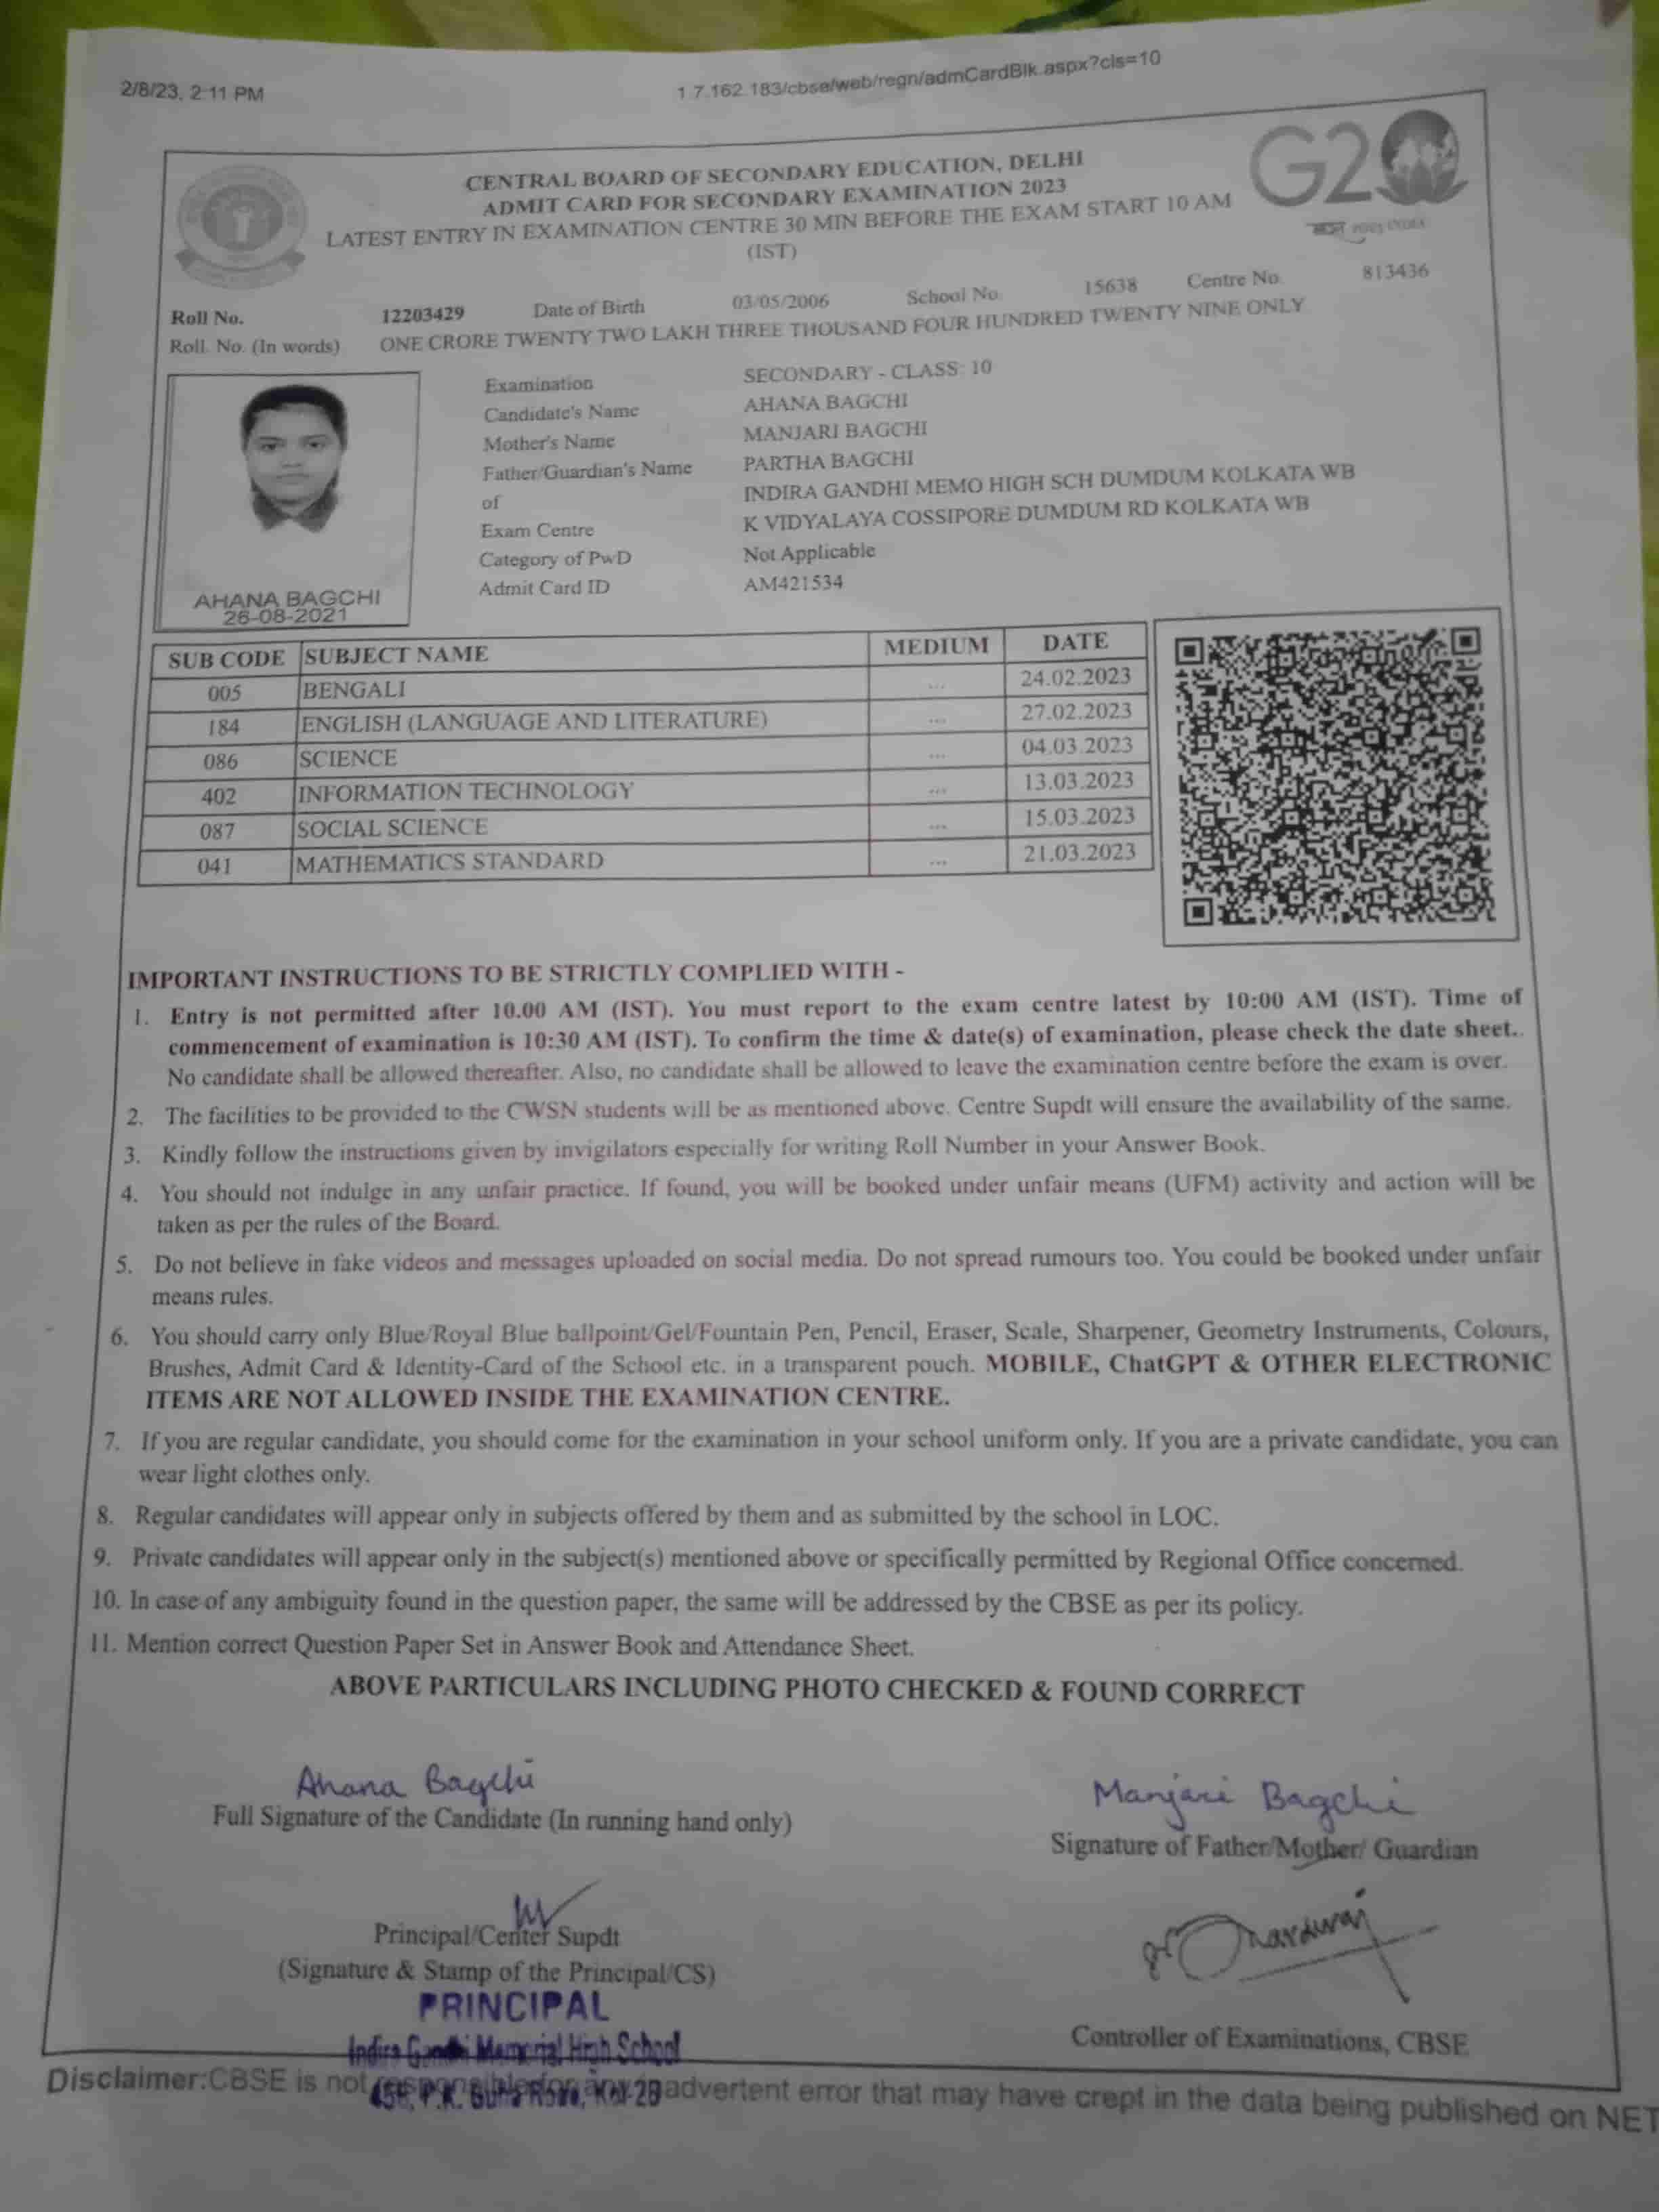 2/8/23, 2:11 PM
1.7.162.183/cbse/web/regn/admCardBlk.aspx?cls=10
CENTRAL BOARD OF SECONDARY EDUCATION, DELHI
ADMIT CARD FOR SECONDARY EXAMINATION 2023
LATEST ENTRY IN EXAMINATION CENTRE 30 MIN BEFORE THE EXAM START 10 AM
(IST)
G20
Roll No. 12203429 Date of Birth 03/05/2006 School No. 15638 Centre No. 813436
Roll. No. (In words) ONE CRORE TWENTY TWO LAKH THREE THOUSAND FOUR HUNDRED TWENTY NINE ONLY
Examination SECONDARY - CLASS: 10
Candidate's Name AHANA BAGCHI
Mother's Name MANJARI BAGCHI
Father/Guardian's Name PARTHA BAGCHI
of INDIRA GANDHI MEMO HIGH SCH DUMDUM KOLKATA WB
Exam Centre K VIDYALAYA COSSIPORE DUMDUM RD KOLKATA WB
Category of PwD Not Applicable
Admit Card ID AM421534
AHANA BAGCHI
26-08-2021
SUB CODE SUBJECT NAME MEDIUM DATE
005 BENGALI ... 24.02.2023
184 ENGLISH (LANGUAGE AND LITERATURE) ... 27.02.2023
086 SCIENCE ... 04.03.2023
402 INFORMATION TECHNOLOGY ... 13.03.2023
087 SOCIAL SCIENCE ... 15.03.2023
041 MATHEMATICS STANDARD ... 21.03.2023
IMPORTANT INSTRUCTIONS TO BE STRICTLY COMPLIED WITH -
1. Entry is not permitted after 10.00 AM (IST). You must report to the exam centre latest by 10:00 AM (IST). Time of
commencement of examination is 10:30 AM (IST). To confirm the time & date(s) of examination, please check the date sheet..
No candidate shall be allowed thereafter. Also, no candidate shall be allowed to leave the examination centre before the exam is over.
2. The facilities to be provided to the CWSN students will be as mentioned above. Centre Supdt will ensure the availability of the same.
3. Kindly follow the instructions given by invigilators especially for writing Roll Number in your Answer Book.
4. You should not indulge in any unfair practice. If found, you will be booked under unfair means (UFM) activity and action will be
taken as per the rules of the Board.
5. Do not believe in fake videos and messages uploaded on social media. Do not spread rumours too. You could be booked under unfair
means rules.
6. You should carry only Blue/Royal Blue ballpoint/Gel/Fountain Pen, Pencil, Eraser, Scale, Sharpener, Geometry Instruments, Colours,
Brushes, Admit Card & Identity-Card of the School etc. in a transparent pouch. MOBILE, ChatGPT & OTHER ELECTRONIC
ITEMS ARE NOT ALLOWED INSIDE THE EXAMINATION CENTRE.
7. If you are regular candidate, you should come for the examination in your school uniform only. If you are a private candidate, you can
wear light clothes only.
8. Regular candidates will appear only in subjects offered by them and as submitted by the school in LOC.
9. Private candidates will appear only in the subject(s) mentioned above or specifically permitted by Regional Office concerned.
10. In case of any ambiguity found in the question paper, the same will be addressed by the CBSE as per its policy.
11. Mention correct Question Paper Set in Answer Book and Attendance Sheet.
ABOVE PARTICULARS INCLUDING PHOTO CHECKED & FOUND CORRECT
Ahana Bagchi
Full Signature of the Candidate (In running hand only)
Manjari Bagchi
Signature of Father/Mother/ Guardian
Principal/Center Supdt
(Signature & Stamp of the Principal/CS)
PRINCIPAL
Indira Gandhi Memorial High School
Controller of Examinations, CBSE
Disclaimer:CBSE is not responsible for any inadvertent error that may have crept in the data being published on NET
P.K. Guha Road, Kol-28